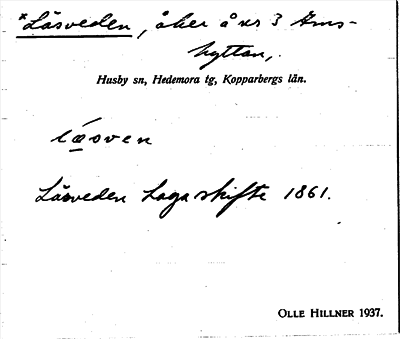 *Läsveden, åker å nr 3 Ams-
hyttan,.
Husby sn, Hedemora tg, Kopparbergs län.
läsven
Läsveden Laga skifte 1861.
OLLE HILLNER 1937.